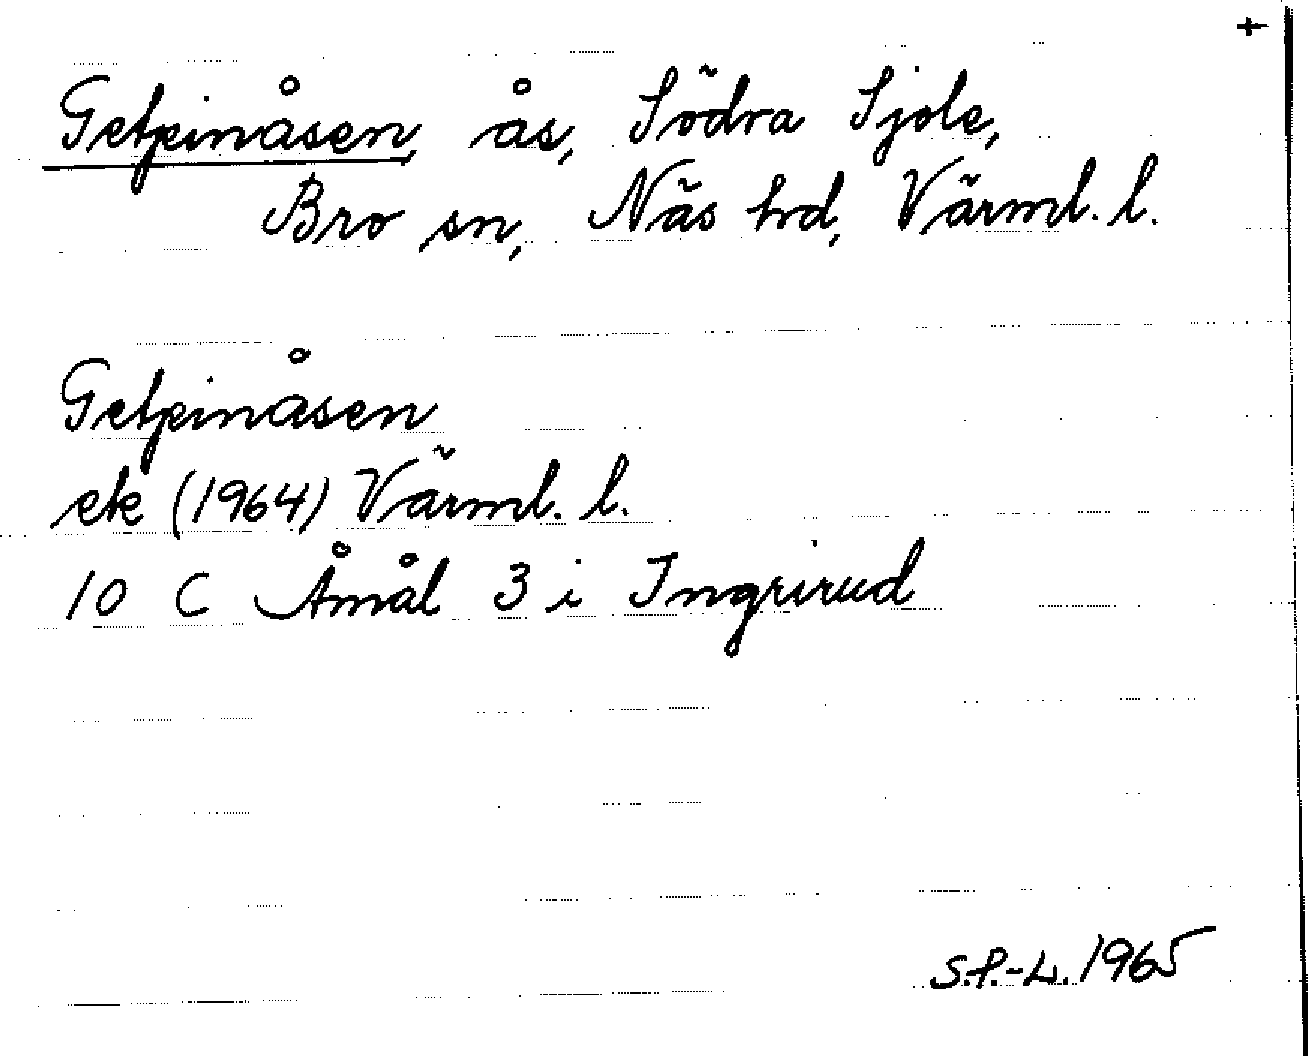 +
Getpinåsen, ås, Södra Sjole,
Bro sn, Näs hd, Värml. l.
Getpinåsen
ek (1964) Värml. l.
10 C Åmål 3 i Ingrirud
S.P.-L. 1965